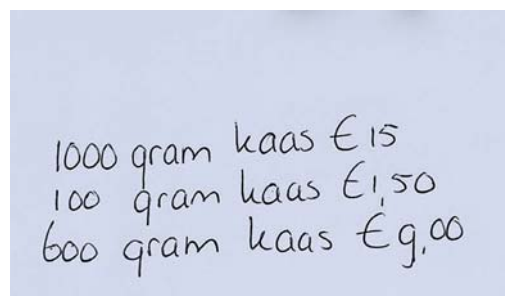 1000 gram kaas € 15
100 gram kaas €1,50
600 gram kaas € 9,00